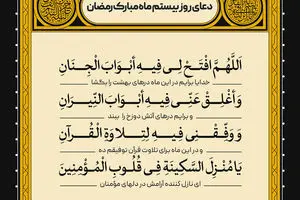 دعای روز بیستم ماه مبارک رمضان
اَللَّهُمَّ افْتَحْ لِی فِیهِ أَبْوَابَ الْجِنَانِ
خدایا برایم در این ماه درهای بهشت را بگشا
وَأَغْلِقْ عَنِّی فِیهِ أَبْوَابَ النِّیرَانِ
و برایم درهای آتش دوزخ را ببند
وَ وَفِّقْنِی فِیهِ لِتِلاوَةِ الْقُرْآنِ
و در این ماه برای تلاوت قرآن توفیقم ده
یَا مُنْزِلَ السَّکِینَةِ فِی قُلُوبِ الْمُؤْمِنِینَ
ای نازل کننده آرامش در دلهای مؤمنان